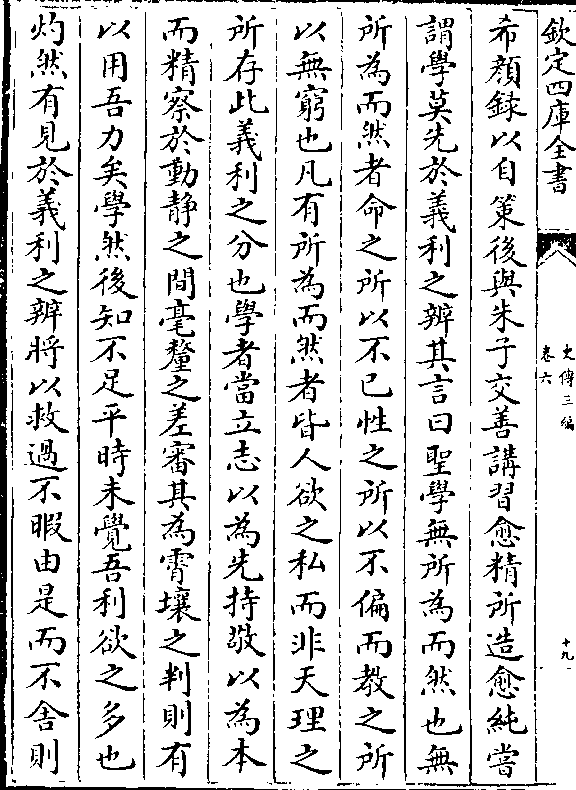 欽定四庫全書
史傳三編
卷六
十九
希顔録以自策後與朱子交善講習愈精所造愈純嘗
謂學莫先於義利之辨其言曰聖學無所為而然也無
所為而然者命之所以不已性之所以不偏而教之所
以無窮也凡有所為而然者皆人欲之私而非天理之
所存此義利之分也學者當立志以為先持敬以為本
而精察於動静之間毫釐之差審其為霄壤之判則有
以用吾力矣學然後知不足平時未覺吾利欲之多也
灼然有見於義利之辨將以救過不暇由是而不舍則